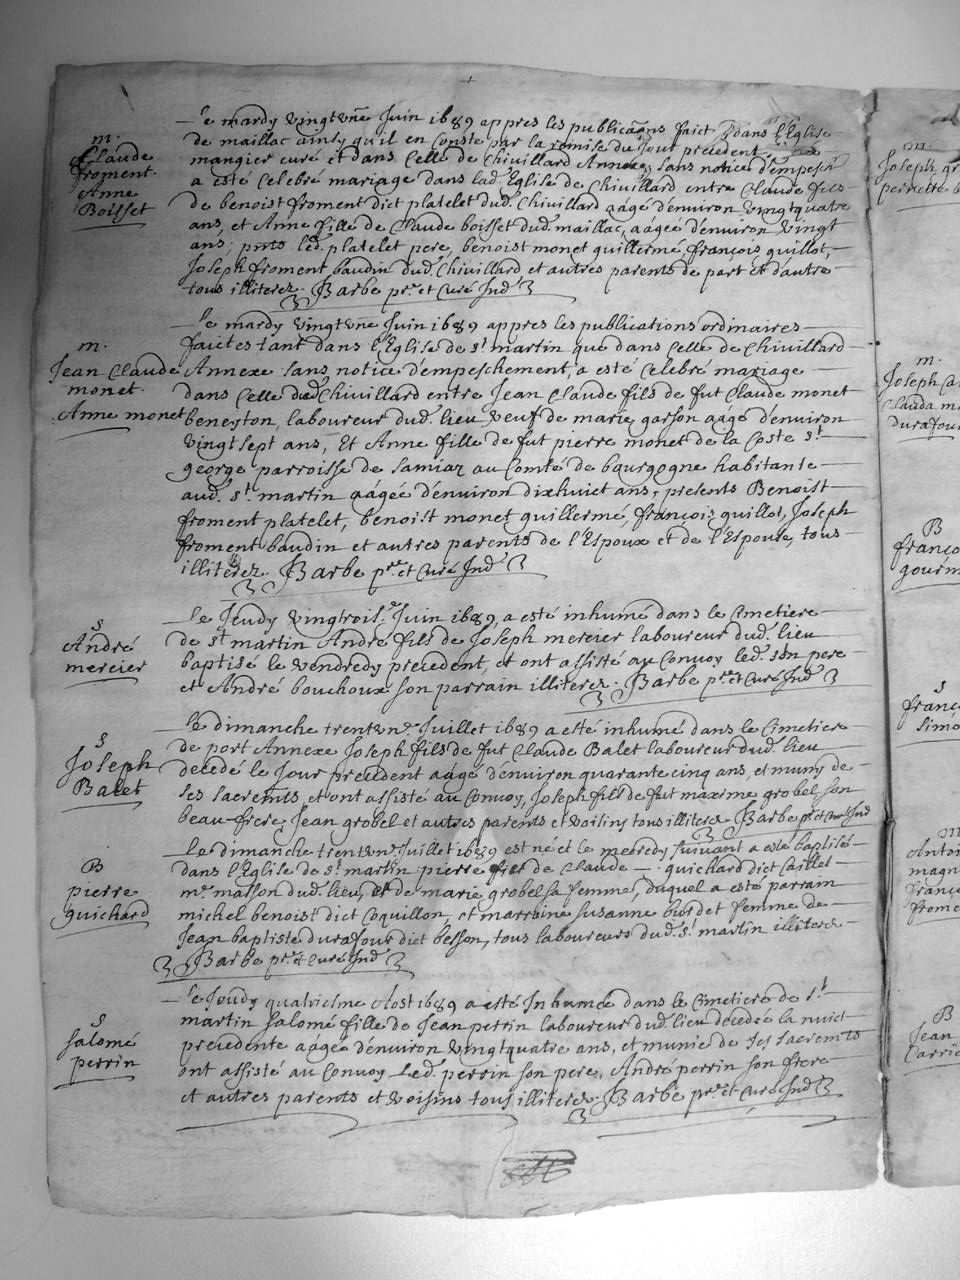 m.
Claude
froment.
Anne
Boisset
Le mardy vingtvne Juin 1689 appres les publicaons faict dans l'Eglise
de maillac ainsy qu'il en Conste par la remise du Jour precedent
mangier curé et dans Celle de Chivillard Annexe, sans notice d'empesch
a esté Celebré mariage dans lad. Eglise de Chivillard entre Claude fils
de benoist froment dict platelet dud. Chivillard aagé d'environ vingtquatre
ans, et Anne fille de Claude boisset dud. maillac, aagée d'environ vingt
ans; pnts led. platelet pere, benoist monet guillermé, françois guillot,
Joseph froment baudin dud. Chivillard et autres parents de part et d'autre
tous illiterez. Barbe pre. et Curé Ind.
m.
Jean Claude
monet.
Anne monet
Le mardy vingtvne Juin 1689 appres les publications ordinaires
faictes tant dans l'Eglise de st. martin que dans Celle de Chivillard
Annexe sans notice d'empeschement, a esté Celebré mariage
dans Celle dud. Chivillard entre Jean Claude fils de fut Claude monet
beneyton, laboureur dud. lieu, veuf de marie garson aagé d'environ
vingt sept ans, Et Anne fille de fut pierre monet de la Coste st.
george parroisse de Samiaz au Comté de bourgogne habitante
aud. st. martin aagée d'environ dixhuict ans, presents Benoist
froment platelet, benoist monet guillermé, françois guillot, Joseph
froment baudin et autres parents de l'Espoux et de l'Espouse, tous
illiterez. Barbe pre. et Curé Ind.
S
André
mercier
Le Jeudy vingtrois.e Juin 1689, a esté inhumé dans le Cimetiere
de st martin André fils de Joseph mercier laboureur dud. lieu
baptisé le vendredy precedent, et ont assisté au Convoy led. son pere
et André bouchoux son parrain illiterez. Barbe pre. et Curé Ind.
S
Joseph
Balet
Le dimanche trentvne. Juillet 1689 a esté inhumé dans le Cimetiere
de port Annexe Joseph fils de fut Claude Balet laboureur dud. lieu
decedé le Jour precedent aagé d'environ quarante cinq ans, et muny de
ses sacremts, et ont assisté au Convoy, Joseph fils de fut maxime grobel son
beau frere, Jean grobel et autres parents et voisins tous illiterez Barbe pr. et Curé Ind
B
pierre
guichard
Le dimanche trentvne. Juillet 1689 est né et le mecredy suivant a esté baptisé
dans l'Eglise de st. martin pierre fils de Claude guichard dict Caillet
me. masson dud. lieu, et de marie grobel sa femme, duquel a esté parrain
michel benoist dict Coquillon, et marraine Susanne burdet femme de
Jean baptiste durafour dict besson, tous laboureurs dud. st. martin illiterez
Barbe pre. et Curé Ind.
S
Salomé
perrin
Le Joudy quatriesme Aost 1689 a esté Inhumée dans le Cimetiere de st.
martin Salomé fille de Jean perrin laboureur dud. lieu decedée la nuict
precedente aagée d'environ vingtquatre ans, et munie de ses sacremts
ont assisté au Convoy Led. perrin son pere, André perrin son frere
et autres parents et voisins tous illiterez. Barbe pre. et Curé Ind.
m.
Joseph
perrette
m.
Joseph
Clauda
durafour
B
S
B
Jean